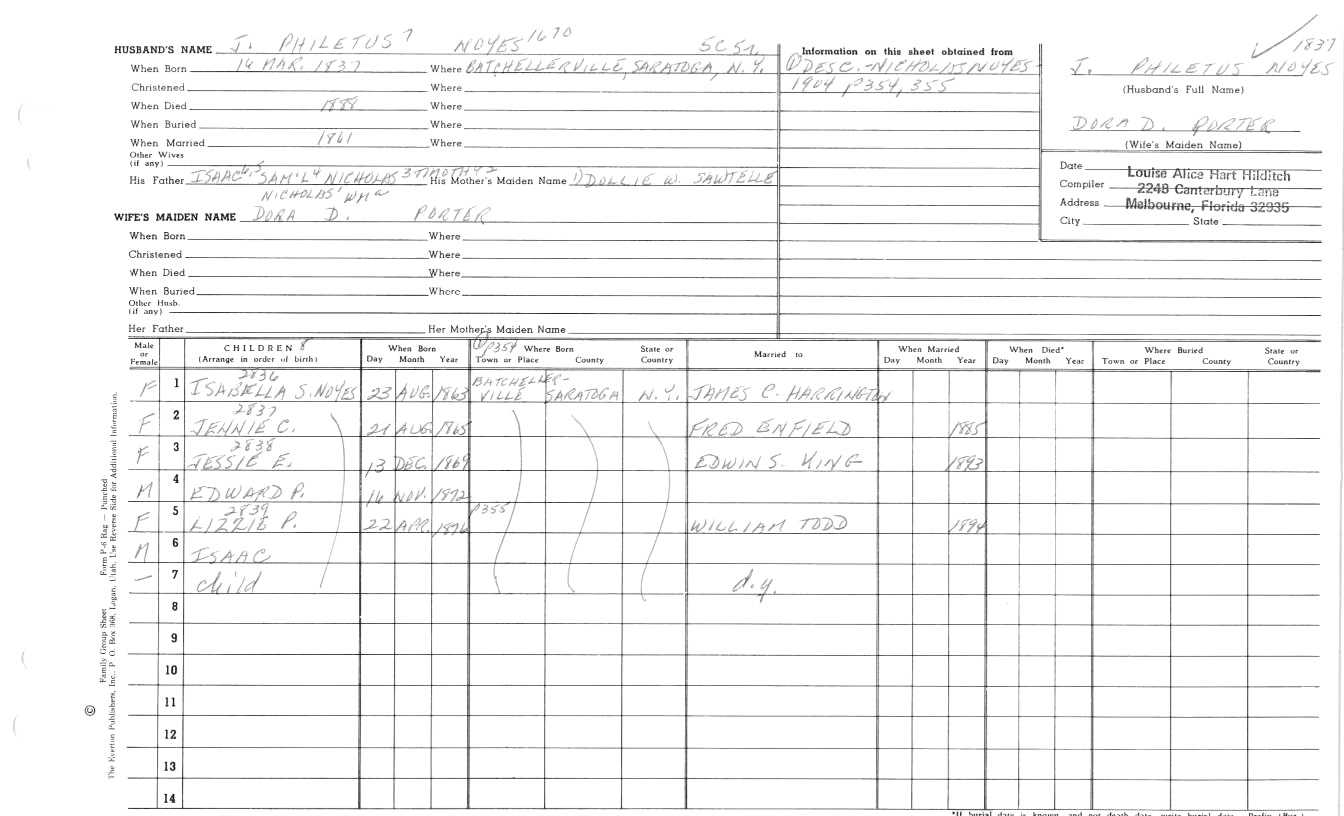 HUSBAND'S NAME J. PHILETUS 7 NOYES 1670
When Born 14 MAR. 1837 Where BATCHELLERVILLE, SARATOGA, N.Y.
Christened Where
When Died 1888 Where
When Buried Where
When Married 1861 Where
Other Wives
(if any)
His Father ISAAC SAM'L 4 NICHOLAS 3 TIMOTHY 2 His Mother's Maiden Name 1) DOLLIE W. SAWTELLE
NICHOLAS' WM
WIFE'S MAIDEN NAME DORA D. PORTER
When Born Where
Christened Where
When Died Where
When Buried Where
Other Husb.
(if any)
Her Father Her Mother's Maiden Name
Information on this sheet obtained from
① DESC.-NICHOLAS NOYES-
1904 P354, 355
1837
J. PHILETUS NOYES
(Husband's Full Name)
DORA D. PORTER
(Wife's Maiden Name)
Date
Louise Alice Hart Hilditch
Compiler 2248 Canterbury Lane
Address Melbourne, Florida 32935
City State
Male or Female CHILDREN 8 (Arrange in order of birth) When Born Day Month Year ① P354 Where Born Town or Place County State or Country Married to When Married Day Month Year When Died* Day Month Year Where Buried Town or Place County State or Country
2836
F 1 ISABELLA S. NOYES 23 AUG. 1863 BATCHELLER-VILLE SARATOGA N.Y. JAMES C. HARRINGTON
2837
F 2 JENNIE C. 21 AUG. 1865 FRED ENFIELD 1885
2838
F 3 JESSIE E. 13 DEC. 1869 EDWIN S. KING 1893
M 4 EDWARD P. 16 NOV. 1872
2839
F 5 LIZZIE P. 22 APR. 1876 P355 WILLIAM TODD 1894
M 6 ISAAC
— 7 child d.y.
8
9
10
11
12
13
14
© Family Group Sheet Form P-6 Rag — Punched
The Everton Publishers, Inc., P. O. Box 368, Logan, Utah. Use Reverse Side for Additional Information.